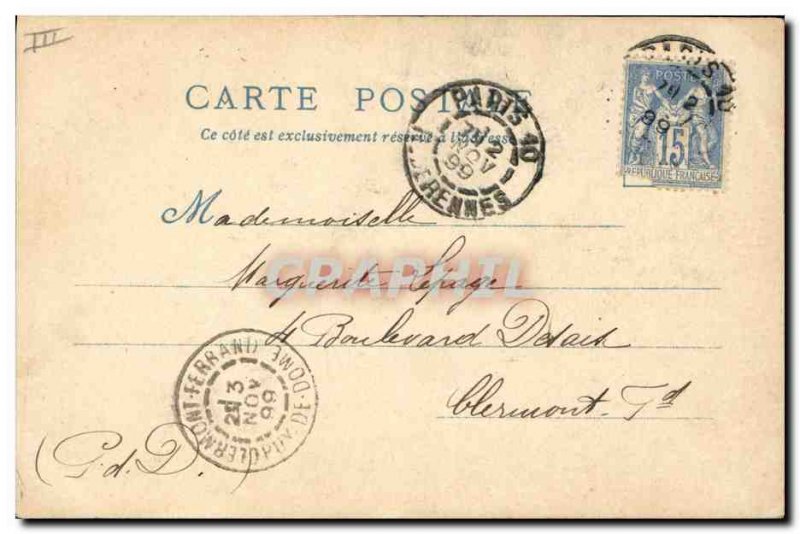 III
CARTE POSTALE
Ce côté est exclusivement réservé à l'adresse
PARIS 10
2
NOV
99
R. DE RENNES
PARIS 10
2
99
POSTES
15
REPUBLIQUE FRANÇAISE
Mademoiselle
Marguerite Lepage
4 Boulevard Desaix
Clermont-Fd
(P.d.D.)
CLERMONT-FERRAND
3
NOV
99
PUY-DE-DOME
CPAPHIL